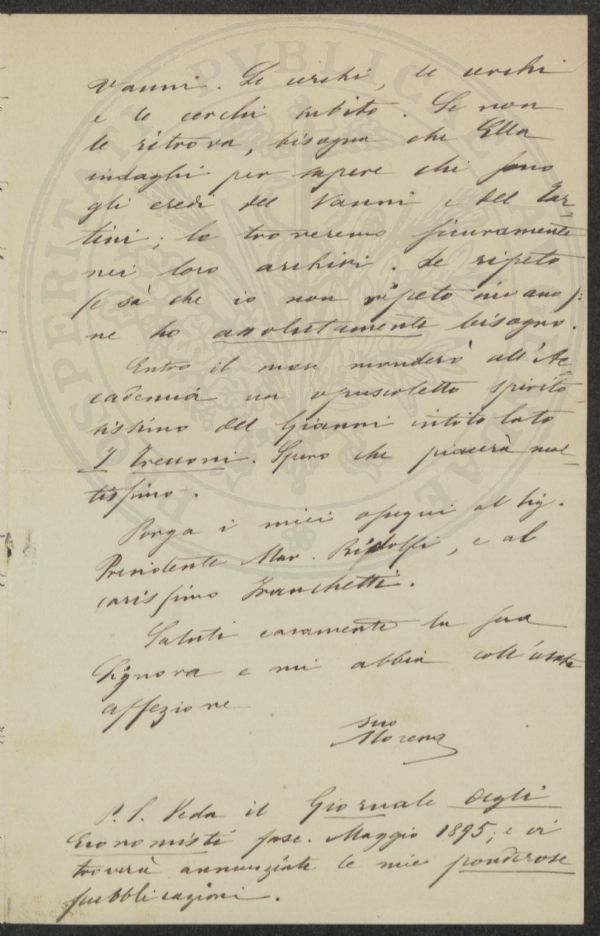 Vanni. Le cerchi, le cerchi
e le cerchi subito. Se non
le ritrova, bisogna che Ella
indaghi per sapere chi sono
gli eredi del Vanni e del Tar-
tini; le troveremo sicuramente
nei loro archivi. Le ripeto
(e sà che io non ripeto invano):
ne ho assolutamente bisogno.
Entro il mese manderò all'Ac-
cademia un opuscoletto spirito-
sissimo del Gianni intitolato
I Fressoni. Spero che piacerà mol-
tissimo.
Porga i miei ossequi al Sig.
Presidente Mar. Ridolfi, e al
carissimo Franchetti.
Saluti caramente la sua
Signora e mi abbia coll'usata
affezione
suo
Morena
P. S. Veda il Giornale degli
Economisti fasc. Maggio 1895; e vi
troverà annunziate le mie ponderose
pubblicazioni.
PROSPERITATI PUBLICAE